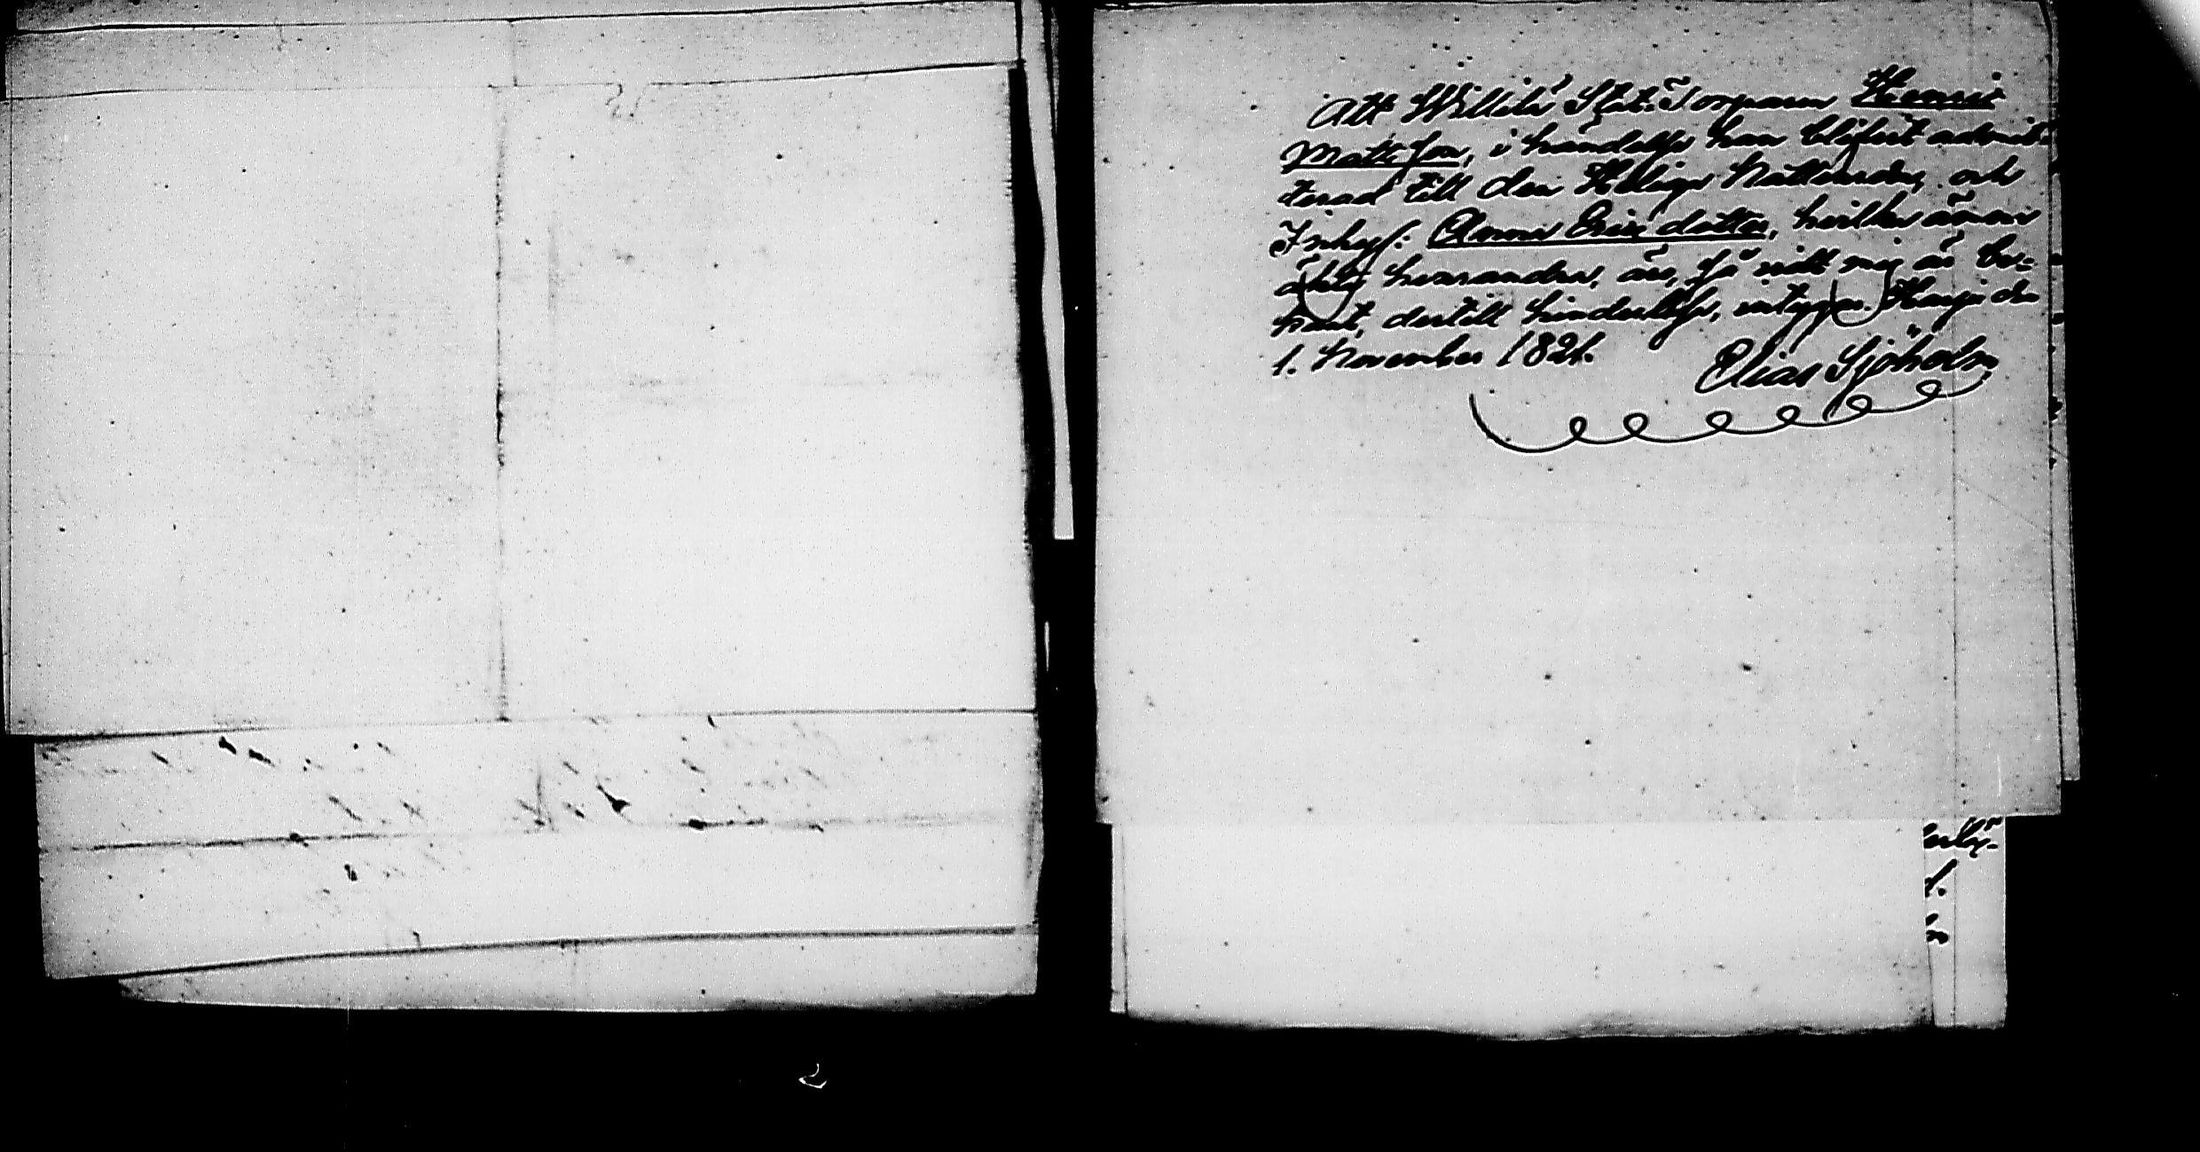 Att Willilä Stat-Torparen Henric
Mattsson, i händelse han blifvit admit-
terad till den Heliga Nattvarden, och
Inhys: Anna Ericsdotter, hvilka ämna
ägta hvarandra, äro, så vidt mig är be-
kant, dertill hinderlöse, intygar. Karja den
1. November 1821.
Elias Sjöholm